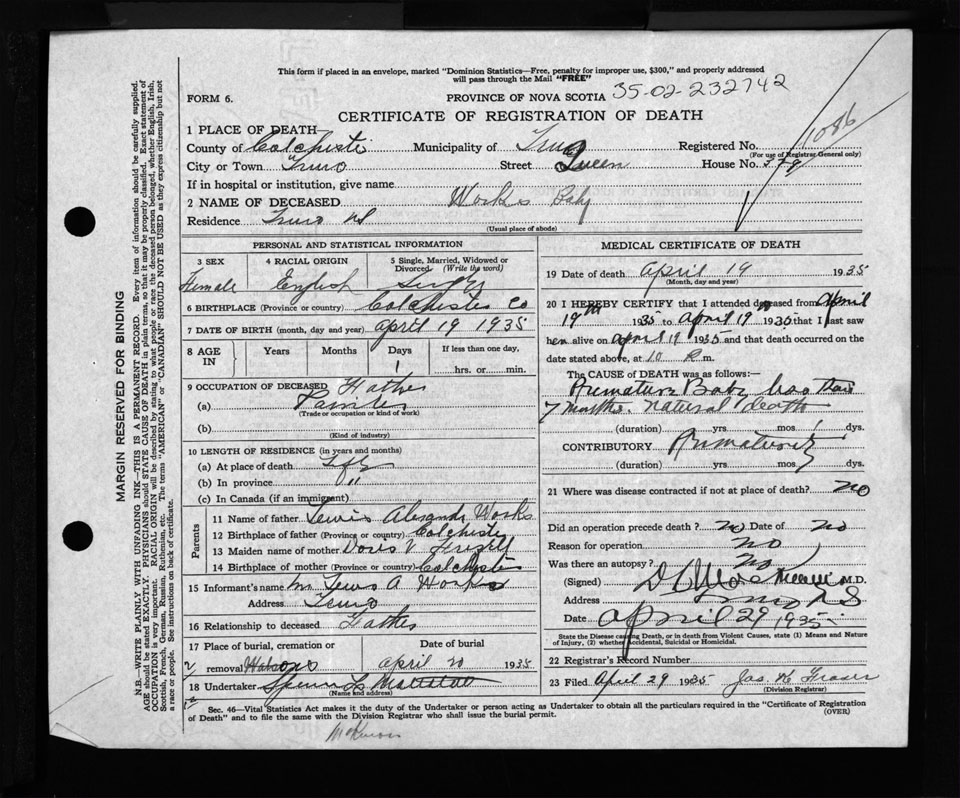 This form if placed in an envelope, marked "Dominion Statistics—Free, penalty for improper use, $300," and properly addressed
will pass through the Mail "FREE"
FORM 6.
PROVINCE OF NOVA SCOTIA 35-02-232742
CERTIFICATE OF REGISTRATION OF DEATH
1 PLACE OF DEATH—
County of Municipality of Truro Registered No. 1086
(For use of Registrar General only)
City or Town Truro Street Queen House No.
If in hospital or institution, give name
2 NAME OF DECEASED Works Baby
Residence Truro NS
(Usual place of abode)
PERSONAL AND STATISTICAL INFORMATION
3 SEX 4 RACIAL ORIGIN 5 Single, Married, Widowed or
Divorced (Write the word)
Female English Single
6 BIRTHPLACE (Province or country) Colchester Co
7 DATE OF BIRTH (month, day and year) April 19 1935
8 AGE IN Years Months Days If less than one day,
1 hrs. or min.
9 OCCUPATION OF DECEASED Father
(a) Painter
(Trade or occupation or kind of work)
(b)
(Kind of industry)
10 LENGTH OF RESIDENCE (in years and months)
(a) At place of death Life
(b) In province "
(c) In Canada (if an immigrant)
Parents
11 Name of father Lewis Works
12 Birthplace of father (Province or country) Colchester
13 Maiden name of mother Doris V
14 Birthplace of mother (Province or country) Colchester
15 Informant's name Lewis A Works
Address Truro
16 Relationship to deceased Father
17 Place of burial, cremation or Date of burial
removal April 20 1935
18 Undertaker
(Name and address)
MEDICAL CERTIFICATE OF DEATH
19 Date of death April 19 1935
(Month, day and year)
20 I HEREBY CERTIFY that I attended deceased from April
19th 1935 to April 19 1935 that I last saw
her alive on April 19 1935 and that death occurred on the
date stated above, at 10 m.
The CAUSE OF DEATH was as follows:—
Premature Baby less than
7 months. natural death
(duration) yrs mos. 1 dys.
CONTRIBUTORY Prematurity
(duration) yrs mos. dys.
21 Where was disease contracted if not at place of death? No
Did an operation precede death? No Date of No
Reason for operation No
Was there an autopsy? No
(Signed) M.D.
Address Truro N S
Date April 29 1935
State the Disease causing Death, or in death from Violent Causes, state (1) Means and Nature
of Injury, (2) whether Accidental, Suicidal or Homicidal.
22 Registrar's Record Number
23 Filed April 29 1935 Jas. K Fraser
(Division Registrar)
Sec. 46—Vital Statistics Act makes it the duty of the Undertaker or person acting as Undertaker to obtain all the particulars required in the "Certificate of Registration
of Death" and to file the same with the Division Registrar who shall issue the burial permit. (OVER)
MARGIN RESERVED FOR BINDING
N.B.—WRITE PLAINLY WITH UNFADING INK—THIS IS A PERMANENT RECORD. Every item of information should be carefully supplied.
AGE should be stated EXACTLY. PHYSICIANS should STATE CAUSE OF DEATH in plain terms, so that it may be properly classified. Exact statement of
OCCUPATION is very important. RACIAL ORIGIN will be described by stating to what people or race the deceased person belonged, whether English, Irish,
Scottish, French, German, Russian, Ruthenian, etc. The terms "AMERICAN" or "CANADIAN" SHOULD NOT BE USED as they express citizenship but not
a race or people. See instructions on back of certificate.